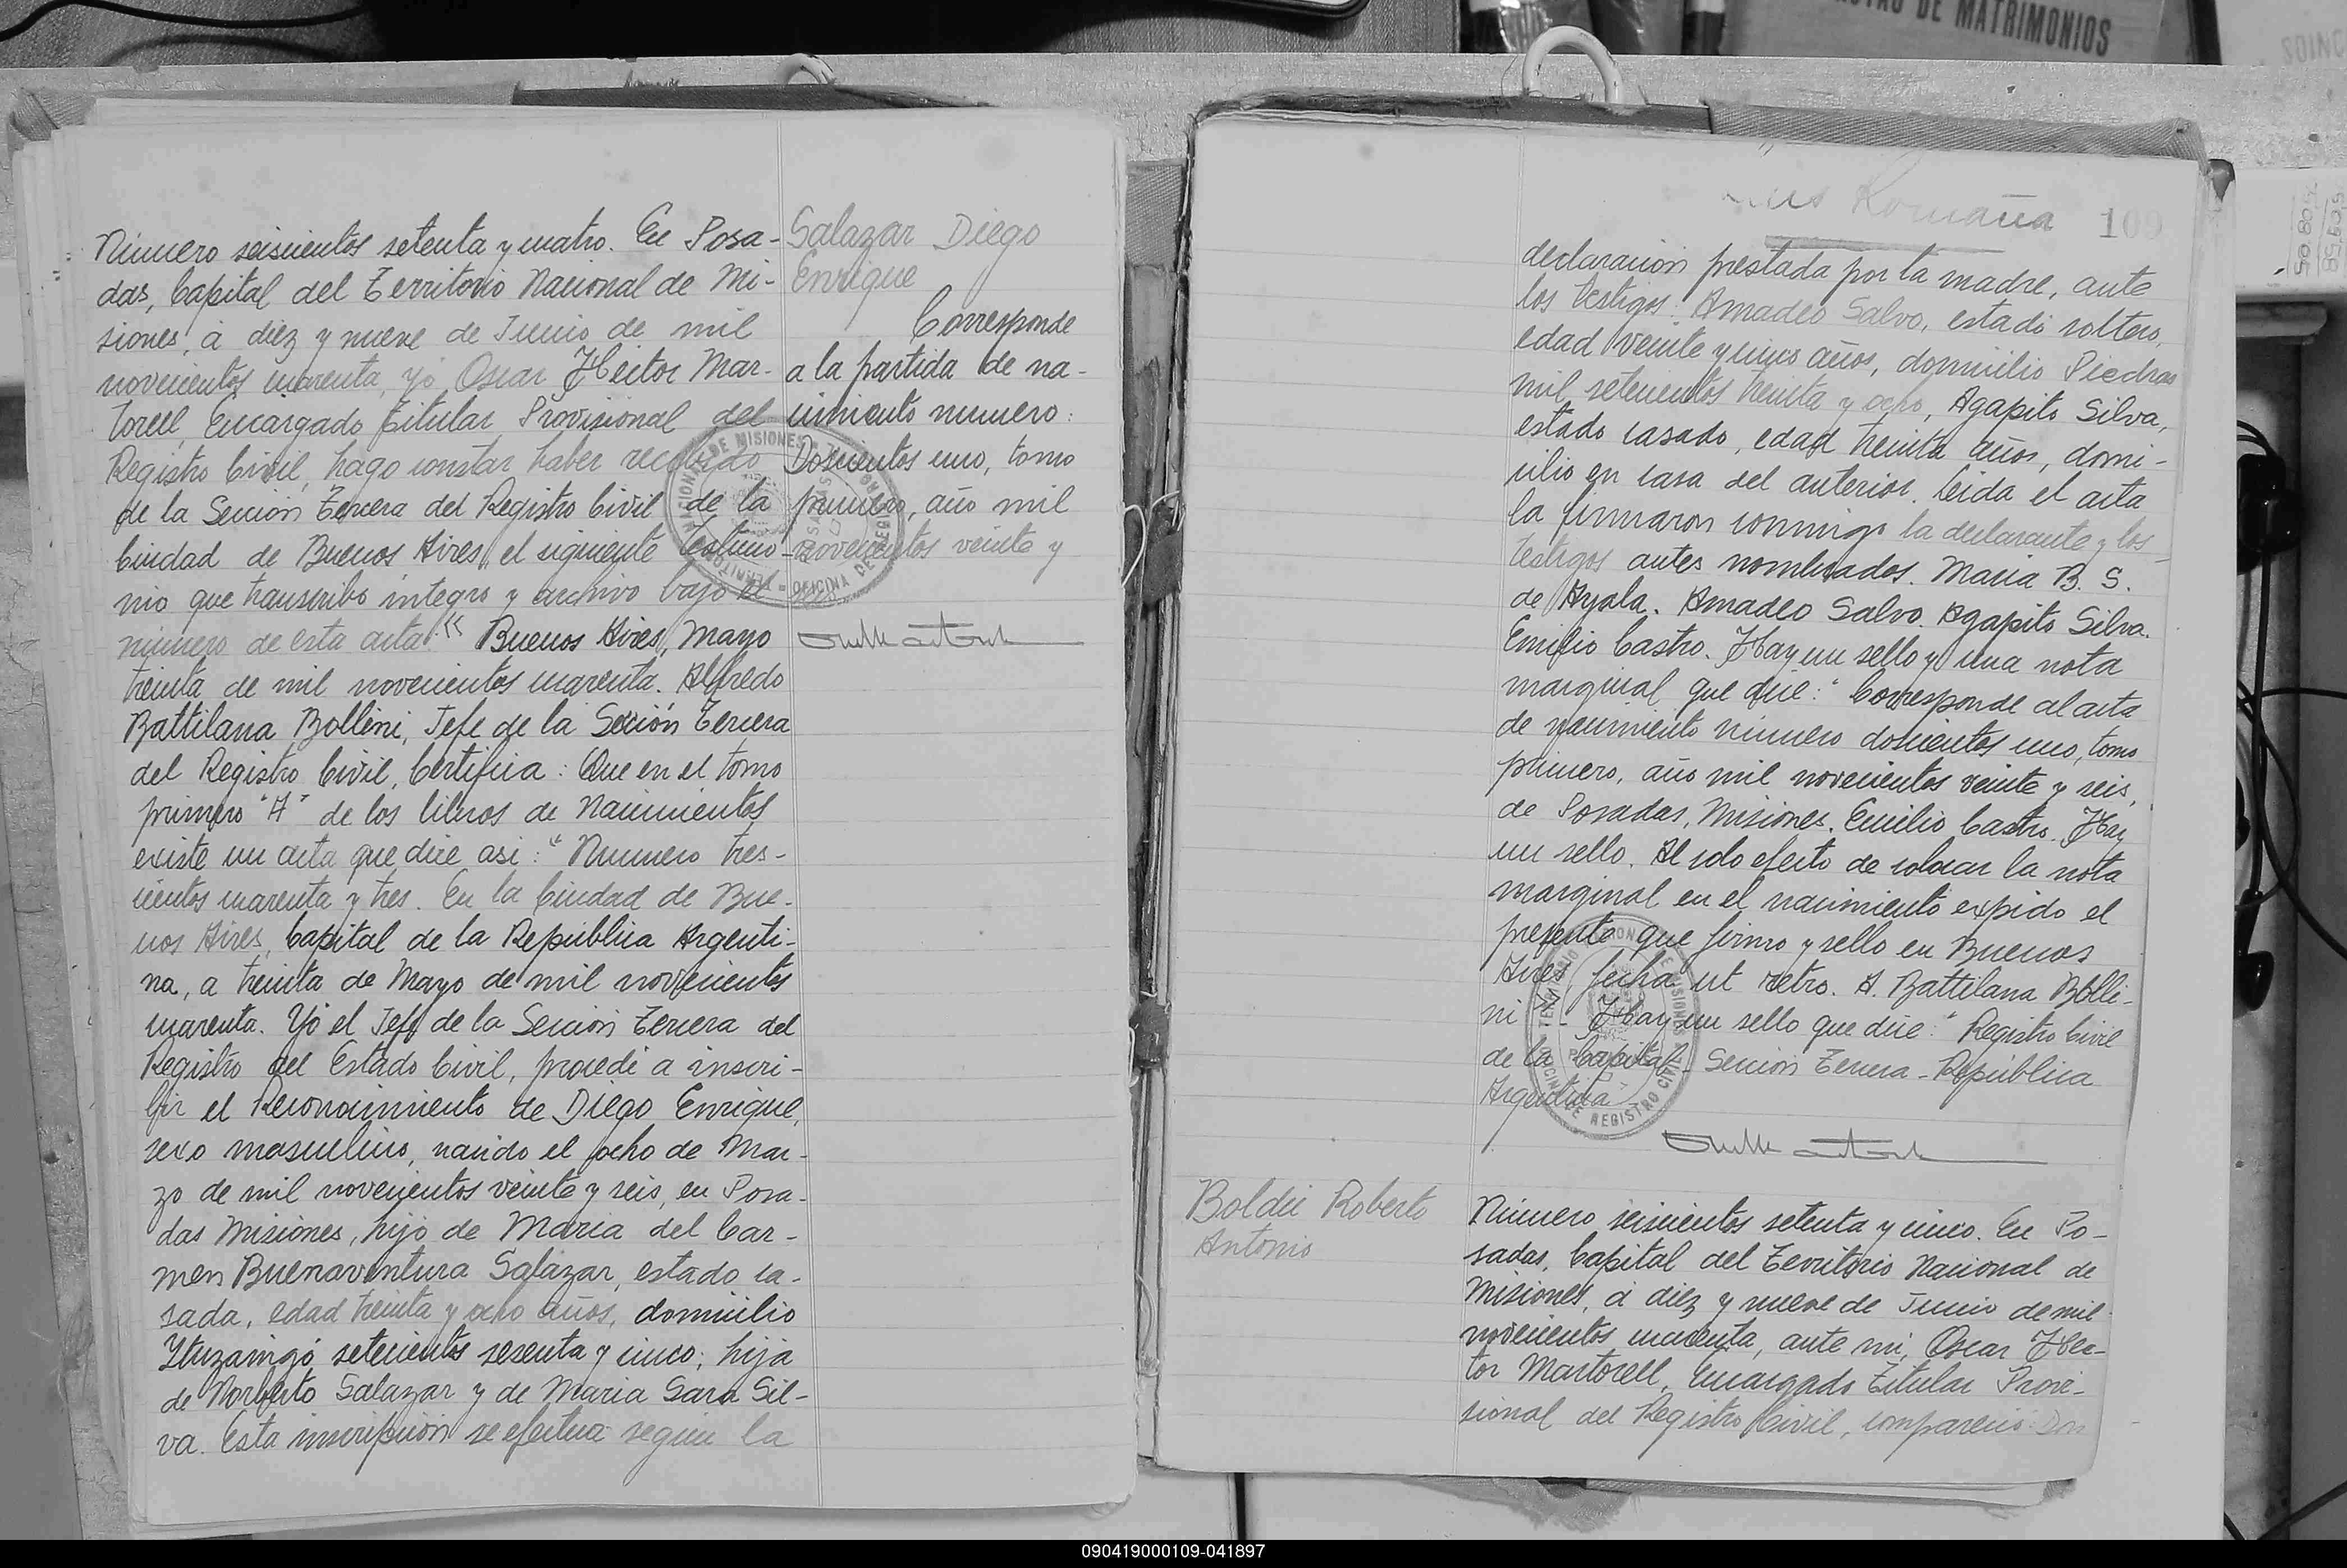 ACTAS DE MATRIMONIOS
Número seiscientos setenta y cuatro. En Posa-
das, Capital del Territorio Nacional de Mi-
siones, á diez y nueve de Junio de mil
novecientos cuarenta, yó Oscar Hector Mar-
torell, Encargado Titular Provisional del
Registro Civil, hago constar haber recibido
de la Sección Tercera del Registro Civil de la
Ciudad de Buenos Aires, el siguiente testimo-
nio que transcribo integro y archivo bajo el
número de esta acta: "Buenos Aires, Mayo
treinta de mil novecientos cuarenta. Alfredo
Battilana Bollini, Jefe de la Sección Tercera
del Registro Civil, Certifica: Que en el tomo
primero "A" de los libros de Nacimientos
existe un acta que dice asi: "Numero tres-
cientos cuarenta y tres. En la Ciudad de Bue-
nos Aires, Capital de la República Argenti-
na, a treinta de Mayo de mil novecientos
cuarenta. Yó el Jefe de la Sección Tercera del
Registro del Estado Civil, procedi a inscri-
bir el Reconocimiento de Diego Enrique,
sexo masculino, nacido el ocho de Mar-
zo de mil novecientos veinte y seis, en Posa-
das Misiones, hijo de Maria del Car-
men Buenaventura Salazar, estado ca-
sada, edad treinta y ocho años, domicilio
Ituzaingó setecientos sesenta y cinco; hija
de Norberto Salazar y de Maria Sara Sil-
va. Esta inscripción se efectua según la
Salazar Diego
Enrique
Corresponde
a la partida de na-
cimiento numero:
Doscientos uno, tomo
primero, año mil
novecientos veinte y
seis.
Romaña 109
declaración prestada por la madre, ante
los testigos: Amadeo Salvo, estado soltero,
edad veinte y cinco años, domicilio Piedras
mil setecientos treinta y ocho, Agapito Silva,
estado casado, edad treinta años, domi-
cilio en casa del anterior. Leida el acta
la firmaron conmigo la declarante y los
testigos antes nombrados. Maria B. S.
de Ayala. Amadeo Salvo. Agapito Silva.
Emilio Castro. Hay un sello y una nota
marginal que dice: "Corresponde al acta
de nacimiento número doscientos uno, tomo
primero, año mil novecientos veinte y seis,
de Posadas, Misiones. Emilio Castro. Hay
un sello. Al solo efecto de colocar la nota
marginal en el nacimiento expido el
presente que firmo y sello en Buenos
Aires, fecha ut retro. A. Battilana Bolli-
ni". - Hay un sello que dice: "Registro Civil
de la Capital - Sección Tercera - República
Argentina
Boldu Roberto
Antonio
Número seiscientos setenta y cinco. En Po-
sadas, Capital del Territorio Nacional de
Misiones, á diez y nueve de Junio de mil
novecientos cuarenta, ante mi, Oscar Hec-
tor Martorell, Encargado Titular Provi-
sional del Registro Civil, compareció: Don
090419000109-041897